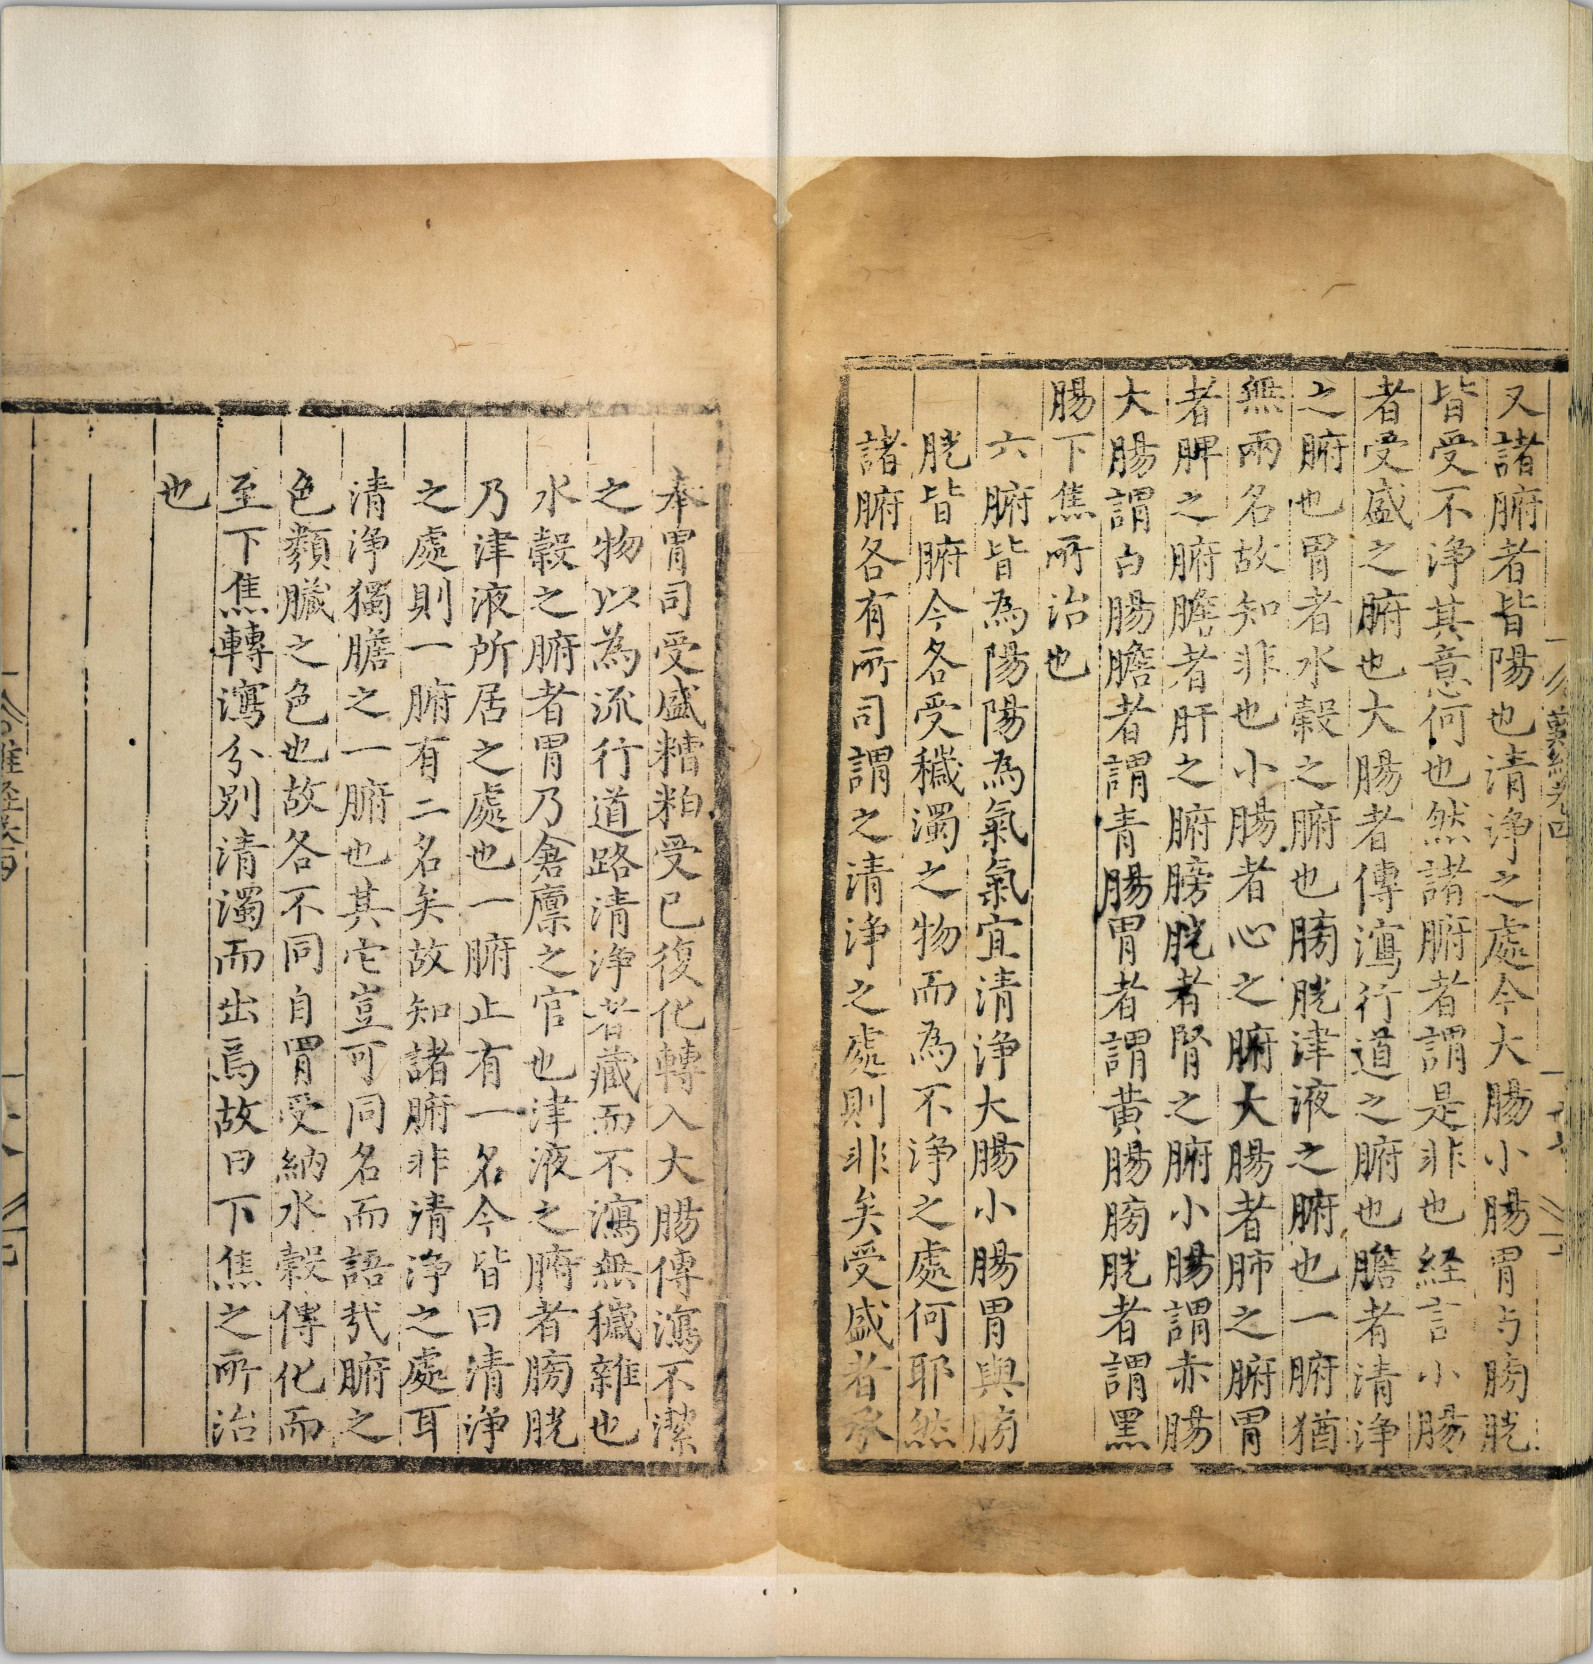 又諸腑者皆陽也清浄之處今大腸小腸胃与膀胱
皆受不浄其意何也然諸腑者謂是非也経言小腸
者受盛之腑也大腸者傳瀉行道之腑也膽者清浄
之腑也胃者水糓之腑也膀胱津液之腑也一腑猶
無兩名故知非也小腸者心之腑大腸者肺之腑胃
者脾之腑膽者肝之腑膀胱者腎之腑小腸謂赤腸
大腸謂白腸膽者謂青腸胃者謂黄腸膀胱者謂黑
腸下焦所治也
六腑皆為陽陽為氣氣宜清浄大腸小腸胃與膀
胱皆腑今各受穢濁之物而為不浄之處何耶然
諸腑各有所司謂之清浄之處則非矣受盛者承
奉胃司受盛糟粕受已復化轉入大腸傳瀉不潔
之物以為流行道路清浄者藏而不瀉無穢雜也
水糓之腑者胃乃倉廪之官也津液之腑者膀胱
乃津液所居之處也一腑止有一名今皆曰清浄
之處則一腑有二名矣故知諸腑非清浄之處耳
清浄獨膽之一腑也其它豈可同名而語㢤腑之
色類臟之色也故各不同自胃受納水糓傳化而
至下焦轉瀉分别清濁而出焉故曰下焦之所治
也